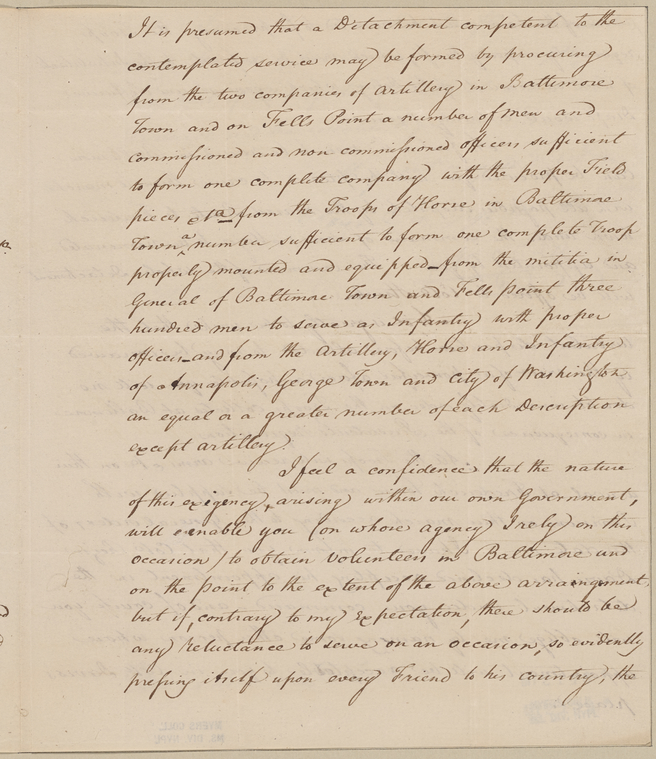 It is presumed that a Detachment competent to the
contemplated service may be formed by procuring
from the two companies of artillery in Baltimore
Town and on Fells Point a number of men and
commissioned and non commissioned officers sufficient
to form one complete company with the proper Field
pieces &ta from the Troops of Horse in Baltimore
Town a number sufficient to form one complete Troop
properly mounted and equipped_from the militia in
General of Baltimore Town and Fells point three
hundred men to serve as Infantry with proper
officers_and from the Artillery, Horse and Infantry
of Annapolis, George Town and City of Washington
an equal or a greater number of each Description
except artillery.
I feel a confidence that the nature
of this exigency, arising within our own Government,
will enable you (on whose agency I rely on this
occasion) to obtain Volunteers in Baltimore and
on the point to the extent of the above arrangement,
but if, contrary to my Expectation, there should be
any Reluctance to serve on an occasion, so evidently
pressing itself upon every Friend to his country, the